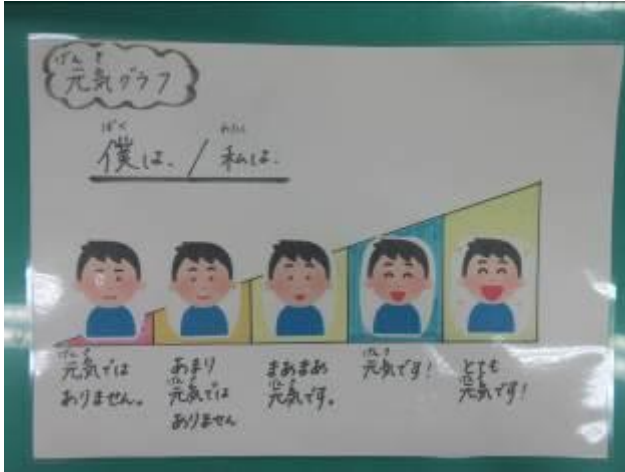 げんき
元気グラフ
ぼく わたし
僕は、/私は、
げんき
元気では
ありません。
あまり
げんき
元気では
ありません
まあまあ
げんき
元気です。
げんき
元気です!
とても
げんき
元気です!